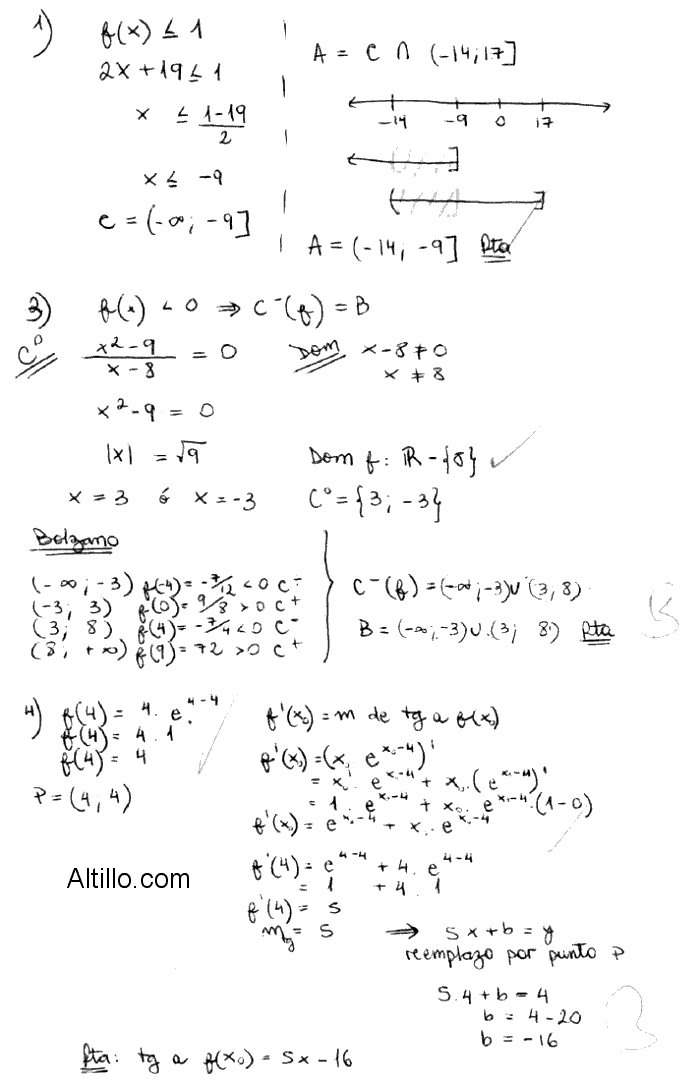 1) f(x) ≤ 1
2x + 19 ≤ 1
x ≤ (1-19)/2
x ≤ -9
C = (-∞; -9]
A = C ∩ (-14; 17]
-14 -9 0 17
A = (-14; -9] Rta
3) f(x) < 0 ⇒ C⁻(f) = B
C⁰ (x² - 9)/(x - 8) = 0
x² - 9 = 0
|x| = √9
x = 3 ó x = -3
Dom x - 8 ≠ 0
x ≠ 8
Dom f: ℝ - {8}
C⁰ = {3; -3}
Bolzano
(-∞; -3) f(-4) = -7/12 < 0 C⁻
(-3; 3) f(0) = 9/8 > 0 C⁺
(3; 8) f(4) = -7/4 < 0 C⁻
(8; +∞) f(9) = 72 > 0 C⁺
C⁻(f) = (-∞; -3) ∪ (3, 8)
B = (-∞; -3) ∪ (3; 8) Rta
B
4) f(4) = 4 . e^(4-4)
f(4) = 4 . 1
f(4) = 4
P = (4, 4)
f'(x₀) = m de tg a f(x₀)
f'(x₀) = (x₀ e^(x₀-4))'
= x₀' . e^(x₀-4) + x₀ . (e^(x₀-4))'
= 1 . e^(x₀-4) + x₀ . e^(x₀-4) . (1-0)
f'(x₀) = e^(x₀-4) + x₀ . e^(x₀-4)
f'(4) = e^(4-4) + 4 . e^(4-4)
= 1 + 4 . 1
f'(4) = 5
m_tg = 5 ⇒ 5x + b = y
reemplazo por punto P
5.4 + b = 4
b = 4 - 20
b = -16
B
Rta: tg a f(x₀) = 5x - 16
Altillo.com